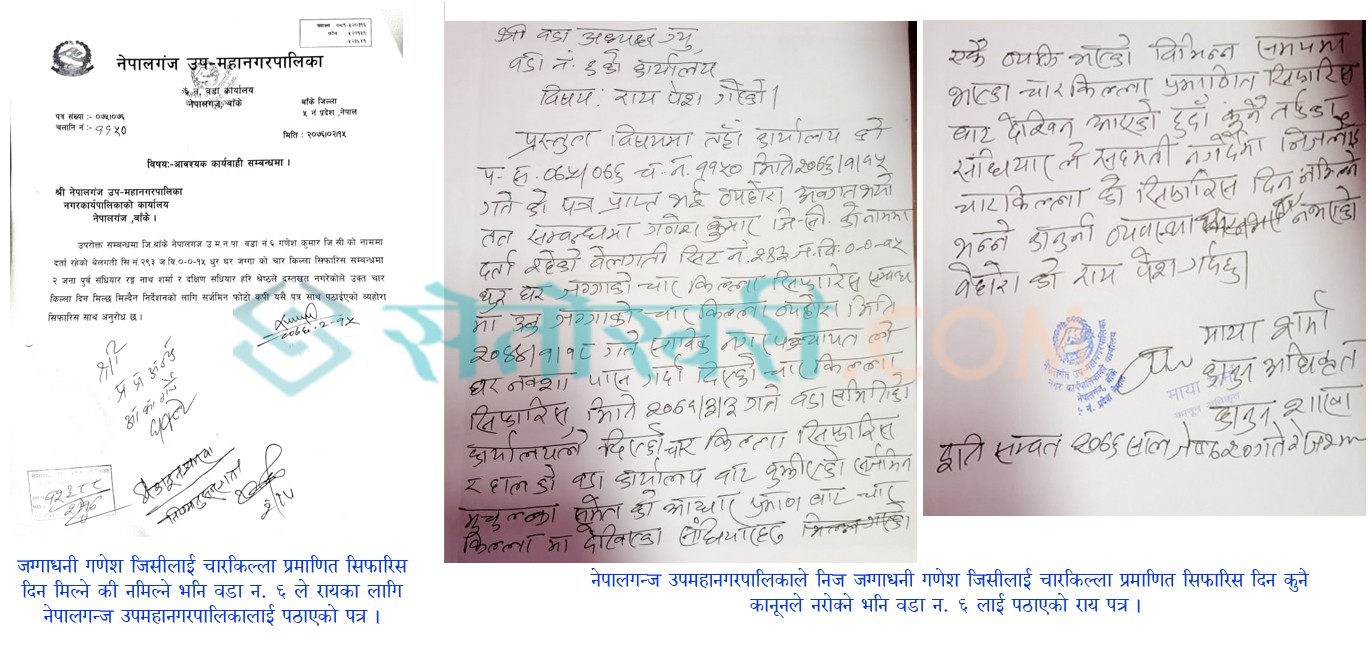 नेपालगंज उप-महानगरपालिका
६ नं. वडा कार्यालय
नेपालगन्ज, बाँके
बाँके जिल्ला
५ नं प्रदेश ,नेपाल
पत्र संख्या :- ०७५।०७६
चलानि नं :- ११५०
मिति : २०७६।०२।१५
विषय:-आवश्यक कार्यवाही सम्बन्धमा ।
श्री नेपालगंज उप-महानगरपालिका
नगरकार्यपालिकाको कार्यालय
नेपालगंज ,बाँके ।
उपरोक्त सम्बन्धमा जि.बाँके नेपालगंज उ.म.न.पा. वडा नं ६ गणेश कुमार जि.सी को नाममा
दर्ता रहेको बेलगती सि नं.२९३ ज.वि.०-०-१५ धुर घर जग्गा को चार किल्ला सिफारिस सम्बन्धमा
२ जना पुर्व संधियार रङ्ग नाथ शर्मा र दक्षिण संधियार हरि श्रेष्ठले दस्तखत नगरेकोले उक्त चार
किल्ला दिन मिल्छ मिल्दैन निर्देशनको लागि सर्जमिन फोटो कपी यसै पत्र साथ पठाईएको व्यहोरा
सिफारिस साथ अनुरोध छ ।
२०७६-२-१५
श्री
जग्गाधनी गणेश जिसीलाई चारकिल्ला प्रमाणित सिफारिस
दिन मिल्ने की नमिल्ने भनि वडा न. ६ ले रायका लागि
नेपालगन्ज उपमहानगरपालिकालाई पठाएको पत्र ।
श्री वडा अध्यक्ष ज्यु
वडा नं. ६ को कार्यालय
विषय: राय पेश गरेको ।
प्रस्तुत विषयमा तहाँ कार्यालय को
प. सं. ०७५/०७६ च. न. ११५० मिति २०७६/२/१५
गते को पत्र प्राप्त भई व्यहोरा अवगत भयो
तत सम्बन्धमा गणेश कुमार जि.सी. को नाममा
दर्ता रहेको वेलगती सिट नं. २९३ ज.वि. ०-०-१५
धुर घर जग्गाको चार किल्ला सिफारिस सम्बन्ध
मा उक्त जग्गाको चार किल्ला व्यहोरा मिति
गते साविक नगर पञ्चायत ले
घर नक्शा पास गर्दा दिएको चार किल्ला
सिफारिस, मिति गते वडा समितिको
कार्यालयले दिएको चार किल्ला सिफारिस
र हालको वडा कार्यालय बाट बुझीएको सर्जमिन
मुचुल्का समेत को आधार प्रमाण बाट चार
किल्ला मा देखिएका संधियारहरु
एकै व्यक्ति भएको विभिन्न समयमा
भएका चारकिल्ला प्रमाणित सिफारिस
बाट देखिन आएको हुँदा कुनै तर्फका
संधियार ले सहमती नगर्दैमा निजलाई
चारकिल्ला को सिफारिस दिन नमिल्ने
भन्ने कानुनी व्यवस्था नभएको
वेहोरा को राय पेश गर्दछु ।
माया शर्मा
कानुन अधिकृत
कानुन शाखा
माया शर्मा
कानून अधिकृत
इति सम्वत २०७६ साल जेष्ठ २० गते रोज शुभम
नेपालगन्ज उपमहानगरपालिकाले निज जग्गाधनी गणेश जिसीलाई चारकिल्ला प्रमाणित सिफारिस दिन कुनै
कानूनले नरोक्ने भनि वडा न. ६ लाई पठाएको राय पत्र ।
सेतोखरी.COM